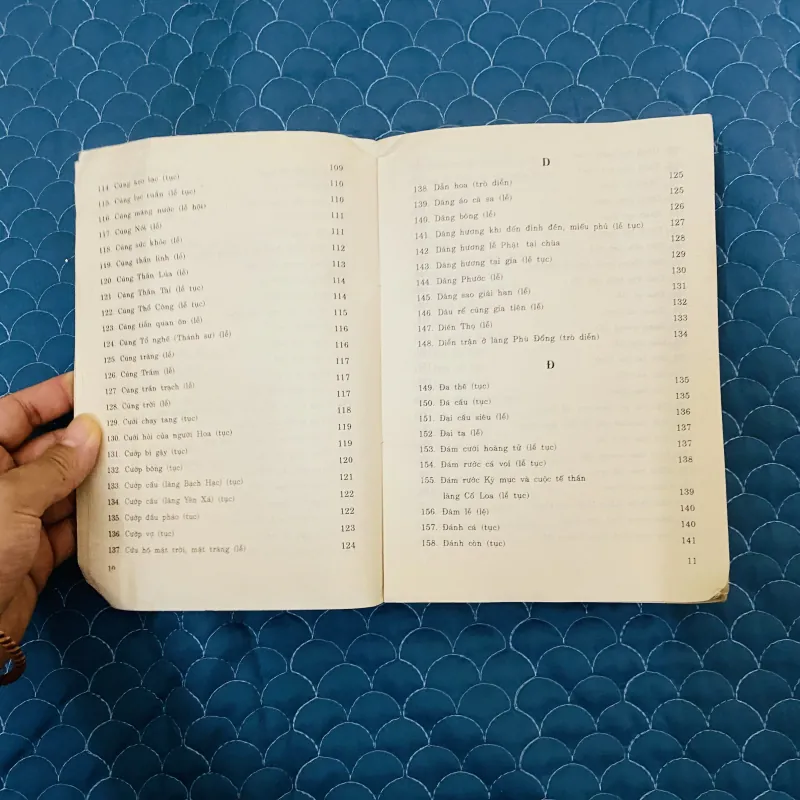 114. Cúng kim bạc (tục) 109
115. Cúng lục tuần (lễ tục) 110
116. Cúng máng nước (lễ hội) 110
117. Cúng Nôi (lễ) 111
118. Cúng sức khỏe (lễ) 111
119. Cúng thần linh (lễ) 112
120. Cúng Thần Lúa (lễ) 113
121. Cúng Thần Tài (lễ tục) 114
122. Cúng Thổ Công (lễ tục) 114
123. Cúng tiễn quan ôn (lễ) 115
124. Cúng Tổ nghề (Thánh sư) (lễ) 116
125. Cúng trăng (lễ) 116
126. Cúng Trâm (lễ) 117
127. Cúng trấn trạch (lễ) 117
128. Cúng trời (lễ) 117
129. Cưới chạy tang (tục) 118
130. Cưới hỏi của người Hoa (tục) 119
131. Cướp bì gậy (tục) 119
132. Cướp bông (tục) 120
133. Cướp cầu (làng Bạch Hạc) (tục) 121
134. Cướp cầu (làng Yên Xá) (tục) 122
135. Cướp đầu pháo (tục) 122
136. Cướp vợ (tục) 123
137. Cứu hộ mặt trời, mặt trăng (lễ) 124
10
D
138. Dẫn hoa (trò diễn) 125
139. Dâng áo cà sa (lễ) 125
140. Dâng bông (lễ) 126
141. Dâng hương khi đến đình đền, miếu phủ (lễ tục) 127
142. Dâng hương lễ Phật tại chùa 128
143. Dâng hương tại gia (lễ tục) 129
144. Dâng Phước (lễ) 130
145. Dâng sao giải hạn (lễ) 131
146. Dâu rể cúng gia tiên (lễ) 132
147. Diên Thọ (lễ) 133
148. Diễn trận ở làng Phù Đổng (trò diễn) 134
Đ
149. Đa thê (tục) 135
150. Đá cầu (tục) 135
151. Đại cầu siêu (lễ) 136
152. Đại tạ (lễ) 137
153. Đám cưới hoàng tử (lễ tục) 137
154. Đám rước cá voi (lễ tục) 138
155. Đám rước Kỳ mục và cuộc tế thần
làng Cổ Loa (lễ tục) 139
156. Đâm lê (lệ) 140
157. Đánh cá (tục) 140
158. Đánh côn (tục) 141
11